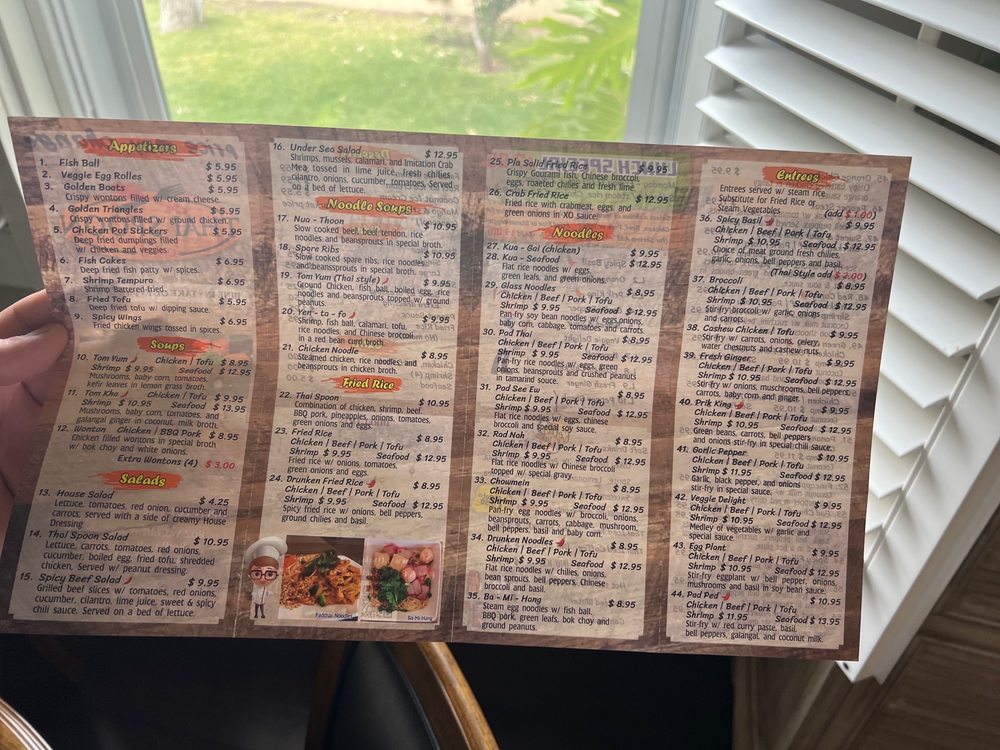 Appetizers
1. Fish Ball $ 5.95
2. Veggie Egg Rolles $ 5.95
3. Golden Boats $ 5.95
Crispy wontons filled w/ cream cheese.
4. Golden Triangles $ 5.95
Crispy wontons filled w/ ground chicken.
5. Chicken Pot Stickers $ 5.95
Deep fried dumplings filled
w/ chicken and veggies.
6. Fish Cakes $ 6.95
Deep fried fish patty w/ spices.
7. Shrimp Tempura $ 6.95
Shrimp Battered-fried.
8. Fried Tofu $ 5.95
Deep fried tofu w/ dipping sauce.
9. Spicy Wings $ 6.95
Fried chicken wings tossed in spices.
Soups
10. Tom Yum Chicken | Tofu $ 8.95
Shrimp $ 9.95 Seafood $ 12.95
Mushrooms, baby corn, tomatoes,
kefir leaves in lemon grass broth.
11. Tom Kha Chicken | Tofu $ 9.95
Shrimp $ 10.95 Seafood $ 13.95
Mushrooms, baby corn, tomatoes, and
galangal ginger in coconut, milk broth.
12. Wonton Chicken | BBQ Pork $ 8.95
Chicken filled wontons in special broth
w/ bok choy and white onions.
Extra Wontons (4) $ 3.00
Salads
13. House Salad $ 4.25
Lettuce, tomatoes, red onion, cucumber and
carrots, Served with a side of creamy House
Dressing
14. Thai Spoon Salad $ 10.95
Lettuce, carrots, tomatoes, red onions,
cucumber, boiled egg, fried tofu, shredded
chicken, Served w/ peanut dressing.
15. Spicy Beef Salad $ 9.95
Grilled beef slices w/ tomatoes, red onions,
cucumber, cilantro, lime juice, sweet & spicy
chili sauce. Served on a bed of lettuce.
16. Under Sea Salad $ 12.95
Shrimps, mussels, calamari, and Imitation Crab
Mea, tossed in lime juice, fresh chilies,
cilantro, onions, cucumber, tomatoes, Served
on a bed of lettuce.
Noodle Soups
17. Nua - Thoon $ 10.95
Slow cooked beef, beef tendon, rice
noodles and beansprouts in special broth.
18. Spare Ribs $ 10.95
Slow cooked spare ribs, rice noodles
and beansprouts in special broth.
19. Tom Yum (Thai style)
Ground Chicken, fish ball, boiled egg, rice
noodles and beansprouts topped w/ ground
peanuts.
20. Yen - ta - fo
Shrimp, fish ball, calamari, tofu,
rice noodles, and Chinese broccoli
in a red bean curd broth.
21. Chicken Noodle $ 8.95
Steamed chicken, rice noodles, and
beansprouts in chicken broth.
Fried Rice
22. Thai Spoon $ 10.95
Combination of chicken, shrimp, beef,
BBQ pork, pineapples, onions, tomatoes,
green onions and eggs.
23. Fried Rice
Chicken | Beef | Pork | Tofu $ 8.95
Shrimp $ 9.95 Seafood $ 12.95
Fried rice w/ onions, tomatoes,
green onions and eggs.
24. Drunken Fried Rice
Chicken | Beef | Pork | Tofu $ 8.95
Shrimp $ 9.95 Seafood $ 12.95
Spicy fried rice w/ onions, bell peppers,
ground chilies and basil.
Ba-Mi-Hang
25. Pla Salid Fried Rice $ 9.95
Crispy Gourami fish, Chinese broccoli,
eggs, roasted chilies and fresh lime.
26. Crab Fried Rice $ 12.95
Fried rice with crabmeat, eggs, and
green onions in XO sauce
Noodles
27. Kua - Gai (chicken) $ 9.95
28. Kua - Seafood $ 12.95
Flat rice noodles w/ eggs,
green leafs, and green onions.
29. Glass Noodles
Chicken | Beef | Pork | Tofu $ 8.95
Shrimp $ 9.95 Seafood $ 12.95
Pan-fry soy bean noodles w/ eggs, onions,
baby corn, cabbage, tomatoes and carrots.
30. Pad Thai
Chicken | Beef | Pork | Tofu $ 8.95
Shrimp $ 9.95 Seafood $ 12.95
Pan-fry rice noodles w/ eggs, green
onions, beansprouts and crushed peanuts
in tamarind sauce.
31. Pad See Ew
Chicken | Beef | Pork | Tofu $ 8.95
Shrimp $ 9.95 Seafood $ 12.95
Flat rice noodles w/ eggs, chinese
broccoli and special soy sauce.
32. Rad Nah
Chicken | Beef | Pork | Tofu $ 8.95
Shrimp $ 9.95 Seafood $ 12.95
Flat rice noodles w/ Chinese broccoli
topped w/ special gravy.
33. Chowmein
Chicken | Beef | Pork | Tofu $ 8.95
Shrimp $ 9.95 Seafood $ 12.95
Pan-fry egg noodles w/ broccoli, onions,
beansprouts, carrots, cabbage, mushroom,
bell peppers, basil and baby corn.
34. Drunken Noodles
Chicken | Beef | Pork | Tofu $ 8.95
Shrimp $ 9.95 Seafood $ 12.95
Flat rice noodles w/ chilies, onions,
bean sprouts, bell peppers, Chinese
broccoli and basil.
35. Ba - Mi - Hang $ 8.95
Steam egg noodles w/ fish ball,
BBQ pork, green leafs, bok choy and
ground peanuts.
Entrees
Entrees served w/ steam rice.
Substitute for Fried Rice or
Steam Vegetables (add $ 1.00)
36. Spicy Basil $ 9.95
Chicken | Beef | Pork | Tofu
Shrimp $ 10.95 Seafood $ 12.95
Choice of meat ground fresh chilies,
garlic, onions, bell peppers and basil.
(Thai Style add $ 2.00)
37. Broccoli $ 8.95
Chicken | Beef | Pork | Tofu
Shrimp $ 10.95 Seafood $ 12.95
Stir-fry broccoli w/ garlic, onions
and carrots.
38. Cashew Chicken | Tofu $ 9.95
Stir-fry w/ carrots, onions, celery,
water chestnuts and cashew nuts.
39. Fresh Ginger $ 8.95
Chicken | Beef | Pork | Tofu
Shrimp $ 10.95 Seafood $ 12.95
Stir-fry w/ onions, muschrooms, bell peppers,
carrots, baby corn and ginger.
40. Prik King $ 9.95
Chicken | Beef | Pork | Tofu
Shrimp $ 10.95 Seafood $ 12.95
Green beans, carrots, bell peppers
and onions stir-fry in special chili sauce.
41. Garlic Pepper $ 10.95
Chicken | Beef | Pork | Tofu
Shrimp $ 11.95 Seafood $ 12.95
Garlic, black pepper, and onions
stir-fry in special sauce.
42. Veggie Delight $ 8.95
Chicken | Beef | Pork | Tofu
Shrimp $ 10.95 Seafood $ 12.95
Medley of vegetables w/ garlic and
special sauce.
43. Egg Plant $ 9.95
Chicken | Beef | Pork | Tofu
Shrimp $ 10.95 Seafood $ 12.95
Stir-fry eggplant w/ bell pepper, onions,
mushrooms and basil in soy bean sauce.
44. Pad Ped $ 10.95
Chicken | Beef | Pork | Tofu
Shrimp $ 11.95 Seafood $ 13.95
Stir-fry w/ red curry paste, basil,
bell peppers, galangal, and coconut milk.